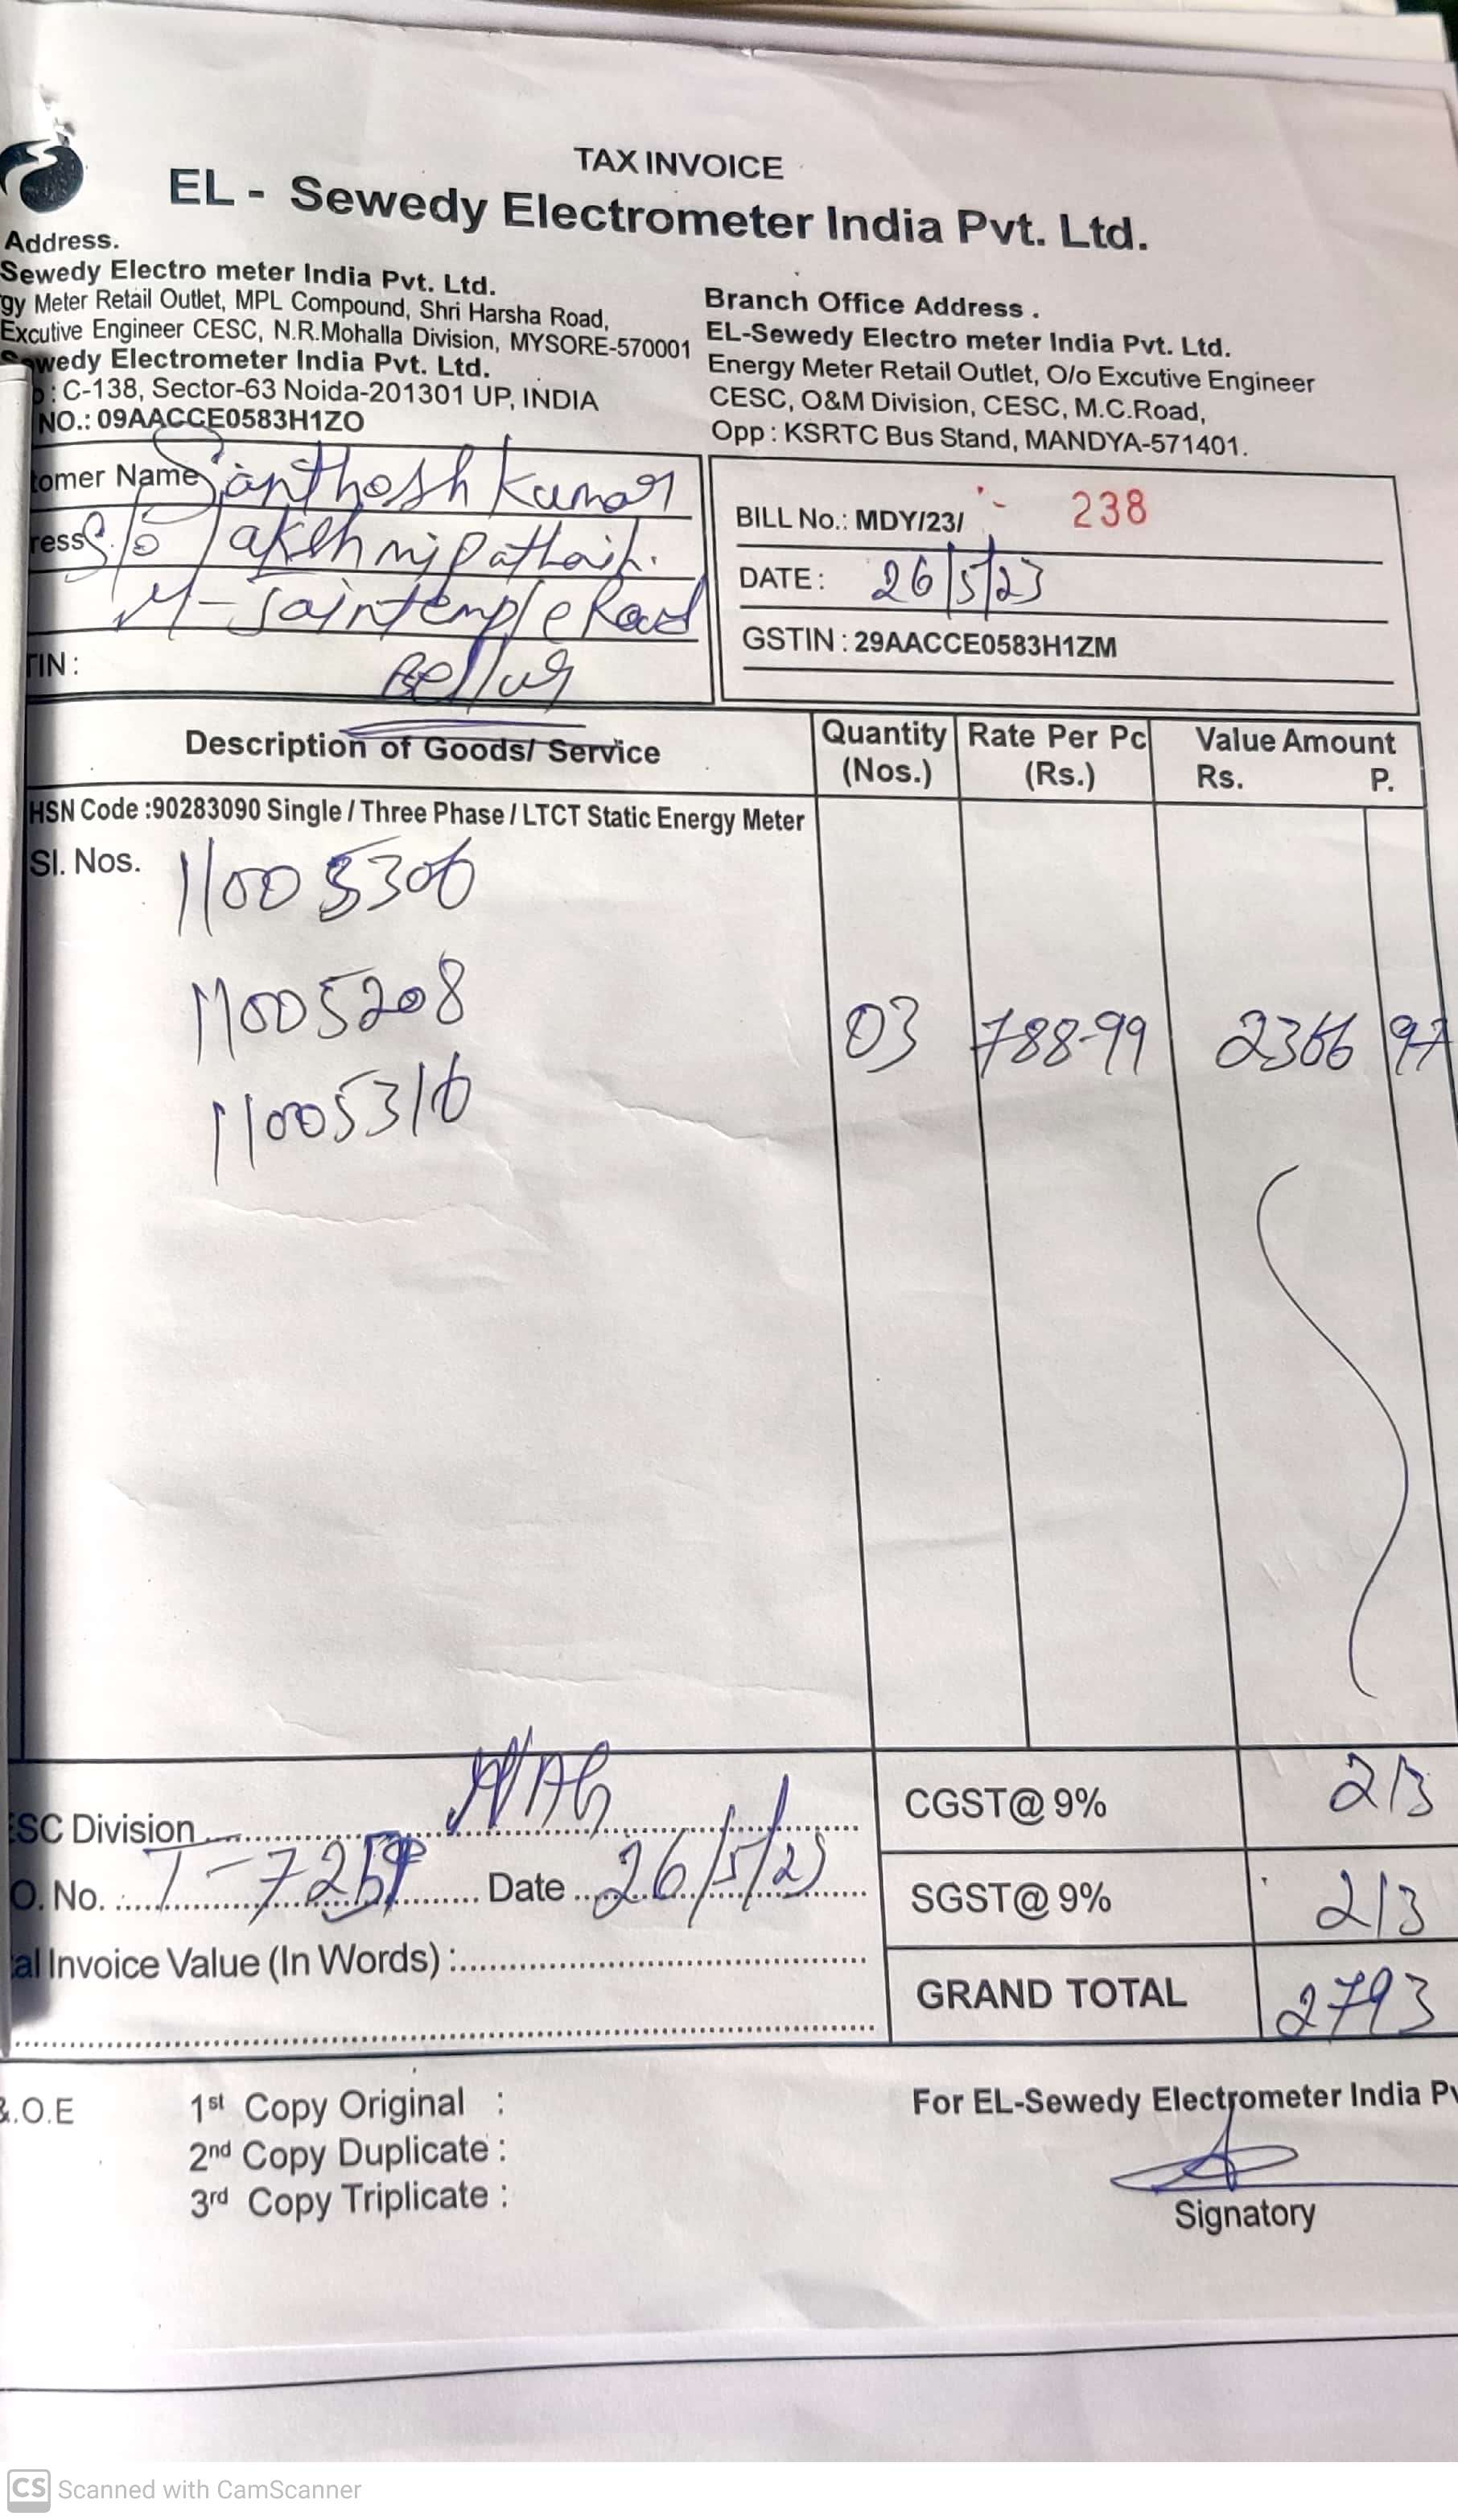 TAX INVOICE
EL - Sewedy Electrometer India Pvt. Ltd.
Address.
Sewedy Electro meter India Pvt. Ltd.
gy Meter Retail Outlet, MPL Compound, Shri Harsha Road,
Excutive Engineer CESC, N.R.Mohalla Division, MYSORE-570001
Sewedy Electrometer India Pvt. Ltd.
: C-138, Sector-63 Noida-201301 UP, INDIA
NO.: 09AACCE0583H1ZO
Branch Office Address .
EL-Sewedy Electro meter India Pvt. Ltd.
Energy Meter Retail Outlet, O/o Excutive Engineer
CESC, O&M Division, CESC, M.C.Road,
Opp : KSRTC Bus Stand, MANDYA-571401.
tomer Name Santhosh Kumar
ress S/o
Jain temple Road
TIN : Bellur
BILL No.: MDY/23/ 238
DATE : 26/5/23
GSTIN : 29AACCE0583H1ZM
Description of Goods/ Service Quantity (Nos.) Rate Per Pc (Rs.) Value Amount Rs. P.
HSN Code :90283090 Single / Three Phase / LTCT Static Energy Meter
Sl. Nos. 11005306
11005208
03 788-99 2366 97
11005316
ESC Division
CGST@ 9% 213
O. No. : Date 26/5/23
SGST@ 9% 213
al Invoice Value (In Words) :
GRAND TOTAL 2793
&.O.E
1st Copy Original :
2nd Copy Duplicate :
3rd Copy Triplicate :
For EL-Sewedy Electrometer India Pv
Signatory
CS Scanned with CamScanner